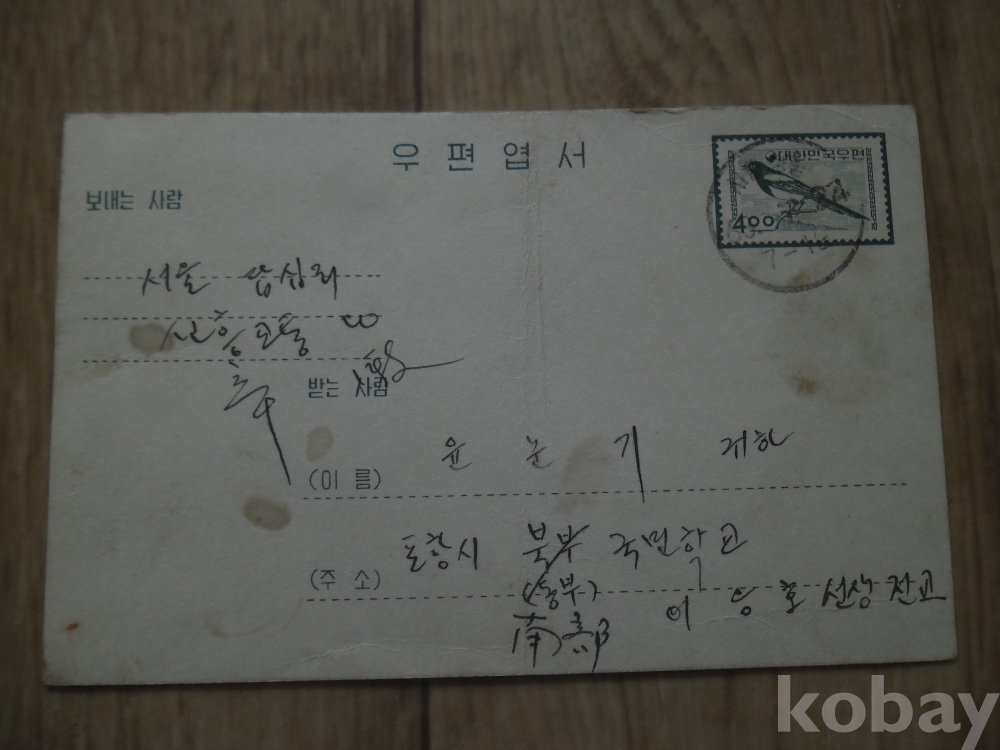 우편엽서
대한민국우편
400
보내는 사람
서울 답십리
신흥교통
받는 사람
(이 름) 윤 눈 기 귀하
(주 소) 포항시 북부 국민학교
(동부)
南部
이 호 선생 전교
kobay